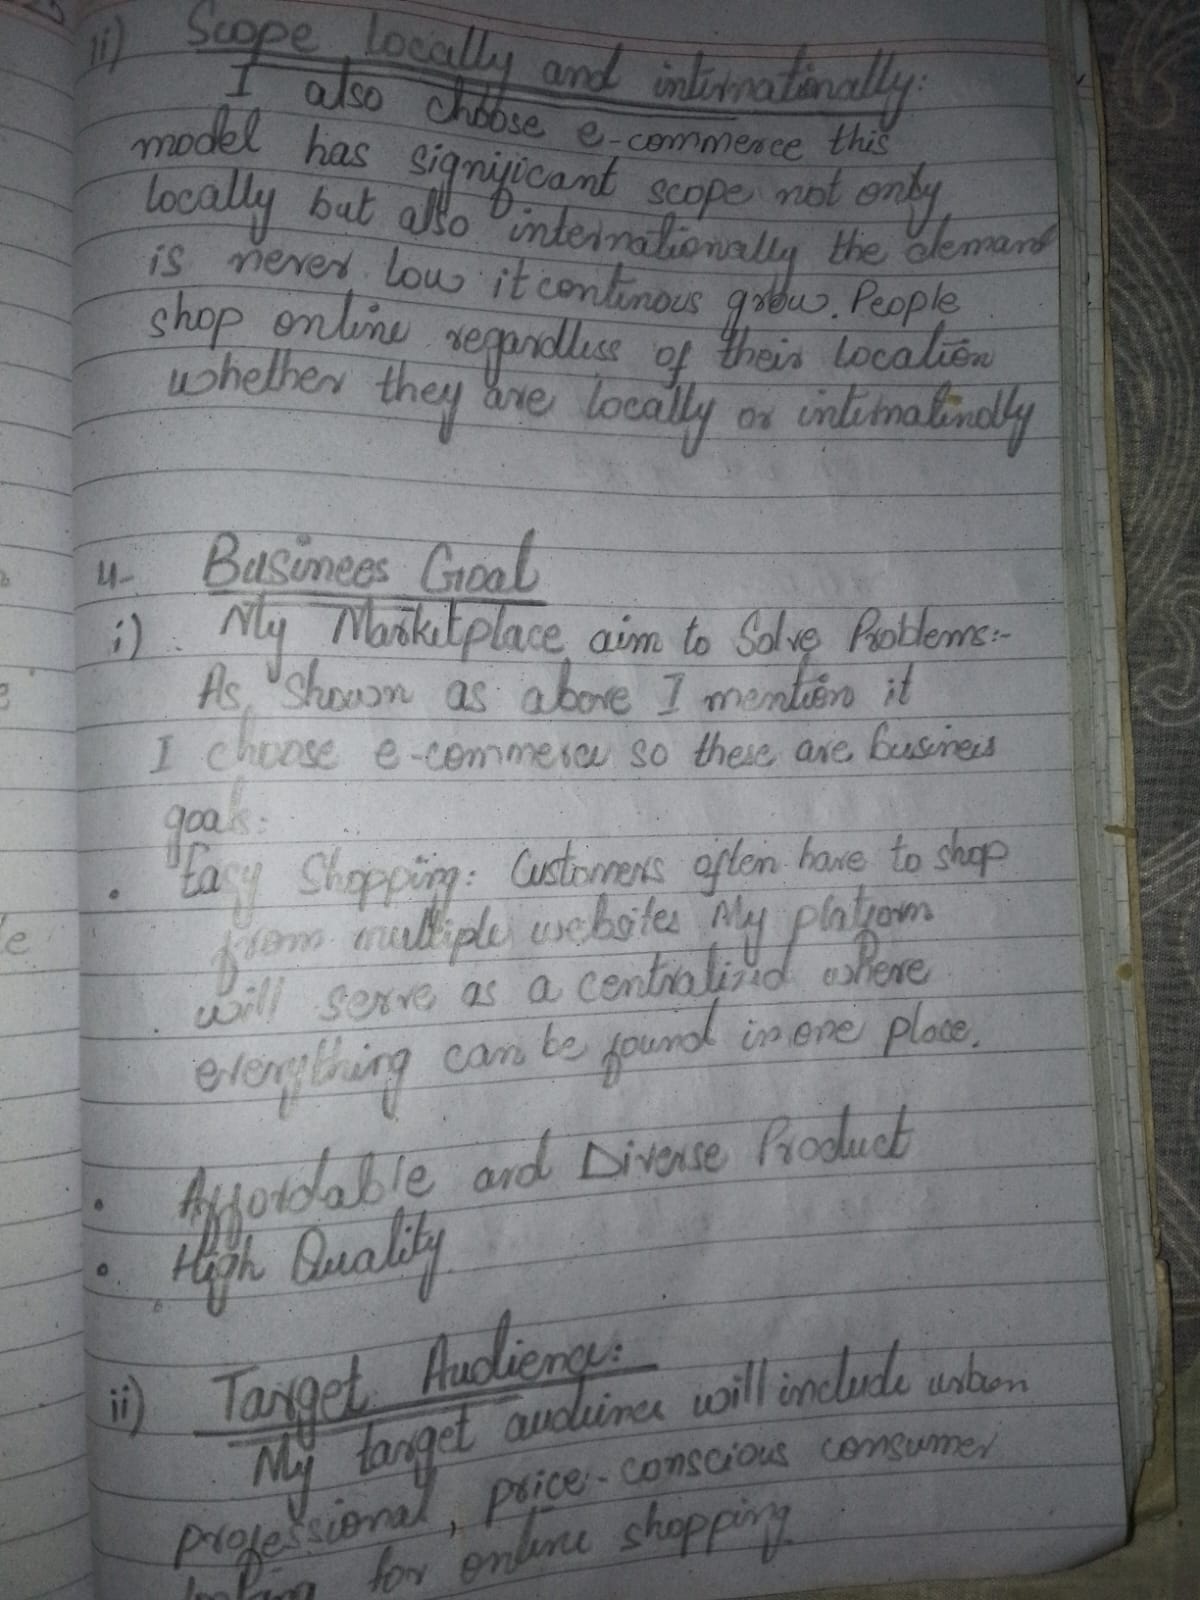 ii) Scope locally and internatinally:
I also choose e-commerce this
model has significant scope not only
locally but also internationally the demand
is never low it continous grow. People
shop online regardless of their location
whether they are locally or internatinolly
4- Businees Goal
i) My Marketplace aim to Solve Problems:-
As Shown as above I mention it
I choose e-commerce so these are business
goals:
• Easy Shopping: Customers often have to shop
from multiple websites My platform
will serve as a centralized where
everything can be found in one place.
• Affordable and Diverse Product
• High Quality
ii) Target Audience:
My target audience will include urban
professional, price-conscious consumer
looking for online shopping